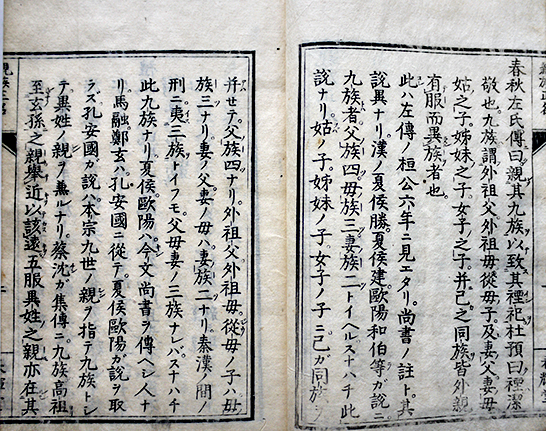 春秋左氏傳曰親其九族以致其禋祀杜預曰禋潔
敬也九族謂外祖父外祖母從母子及妻父妻母
姑之子姊妹之子女子之子并己之同族皆外親
有服而異族者也
此ハ左傳ノ桓公六年ニ見エタリ尚書ノ註ト其
說異ナリ漢ノ夏侯勝夏侯建歐陽和伯等ガ說ニ
九族者父族四母族三妻族二トイヘルスナハチ此
說ナリ姑ノ子姊妹ノ子女子ノ子ニ己ガ同族ヲ
并セテ父族四ナリ外祖父外祖母從母ノ子ハ母
族三ナリ妻ノ父妻ノ母ハ妻族二ナリ秦漢ノ間ノ
刑ニ夷三族トイフモ父母妻ノ三族ナレバスナハチ
此九族ナリ夏侯歐陽ハ今文尚書ヲ傳ヘシ人ナ
リ馬融鄭玄ハ孔安國ニ從テ夏侯歐陽ガ說ヲ取
ラズ孔安國ガ說ハ本宗九世ノ親ヲ指テ九族トシ
テ異姓ノ親ヲ兼ルナリ蔡沈ガ集傳ニ九族高祖
至玄孫之親舉近以該遠五服異姓之親亦在其